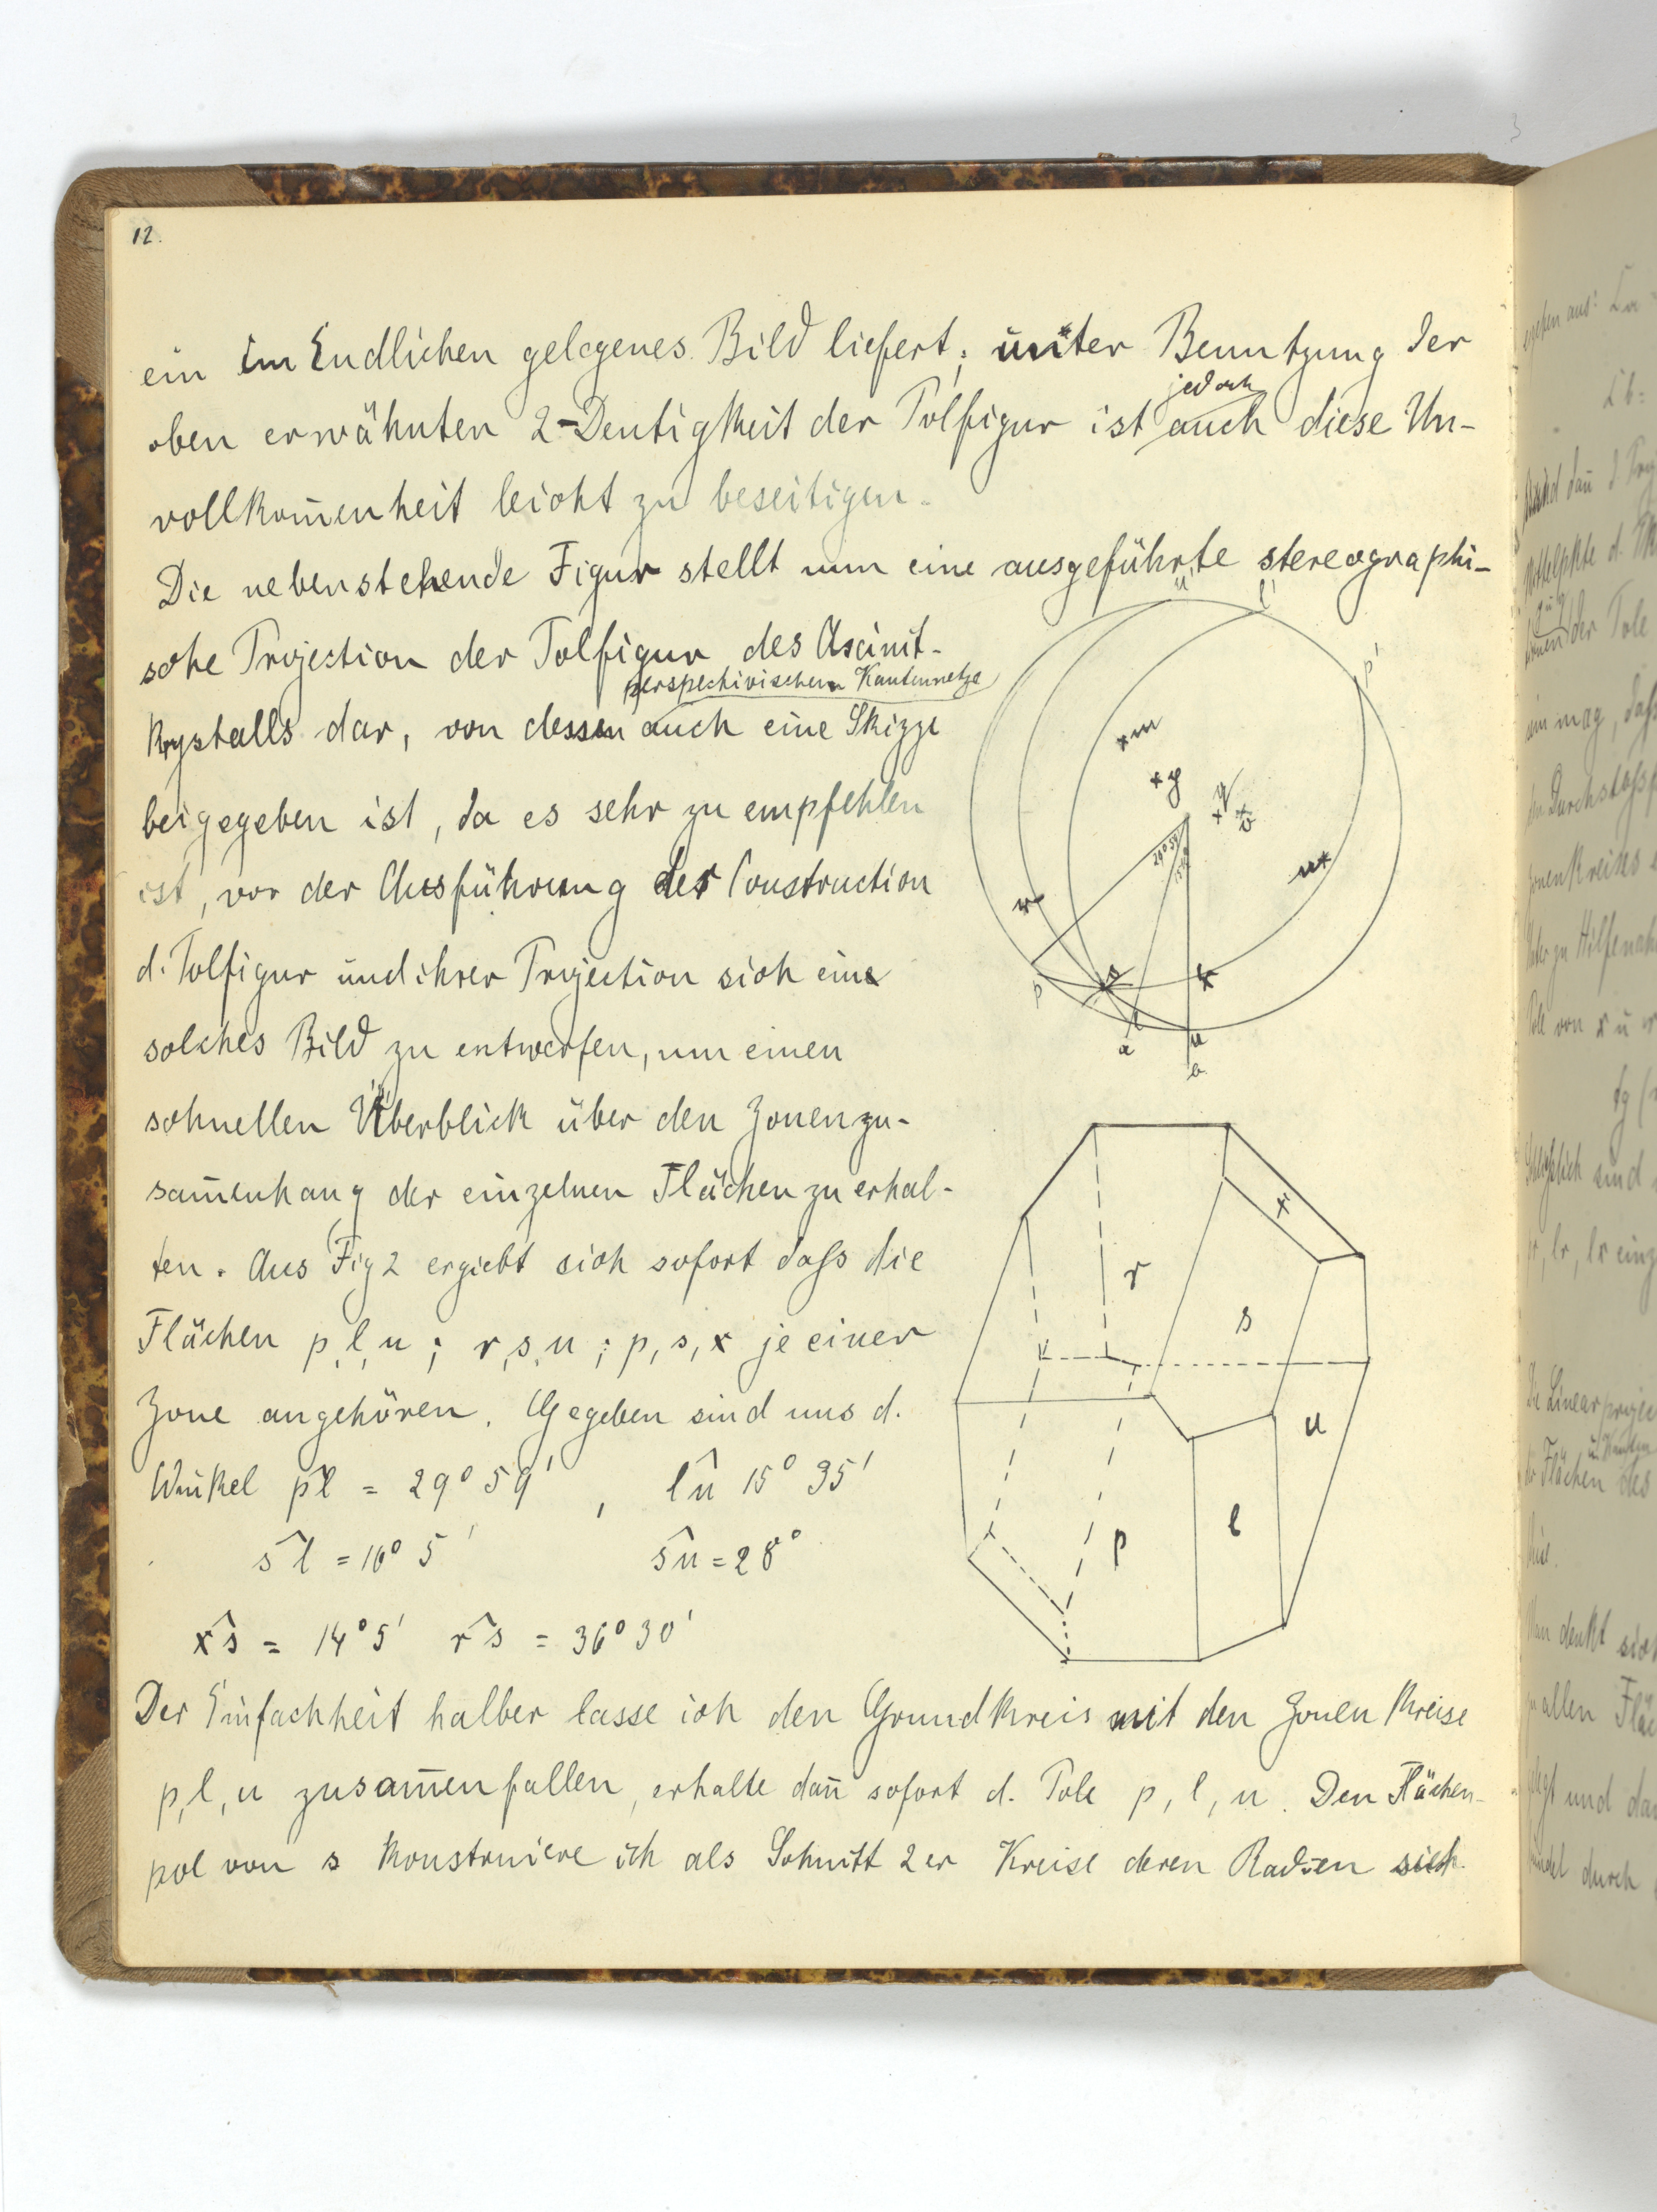 12.
ein im Endlichen gelegenes Bild liefert; unter Benutzung der
jedoch
oben erwähnten 2-Deutigkeit der Polfigur ist auch diese Un-
vollkom̅enheit leicht zu beseitigen.
Die nebenstehende Figur stellt nun eine ausgeführte stereographi-
sche Projection der Polfigur des Axinit-
perspectivischem Kantennetze
krystalls dar, von dessen auch eine Skizze
beigegeben ist, da es sehr zu empfehlen
ist, vor der Ausführung der Construction
d. Polfigur und ihrer Projection sich ein
solches Bild zu entwerfen, um einen
schnellen Überblick über den Zonenzu-
sam̅enhang der einzelnen Flächen zu erhal-
ten. Aus Fig 2 ergiebt sich sofort daſs die
Flächen p, l, u ; r, s, u ; p, s, x je einer
Zone angehören. Gegeben sind uns d.
Winkel p͡l = 29° 59' , l͡u 15° 35'
s͡l = 16° 5' s͡u = 28°
x͡s = 14° 5' r͡s = 36° 30'
Der Einfachheit halber lasse ich den Grundkreis mit den Zonen Kreise
p, l, u zusam̅enfallen, erhalte dan̅ sofort d. Pole p, l, u. Den Flächen-
pol von s konstruiere ich als Schnitt 2er Kreise deren Radien sich
u'
l'
p'
m
y
v
r
s
x
p
l
u
a
b
x
r
s
u
p
l